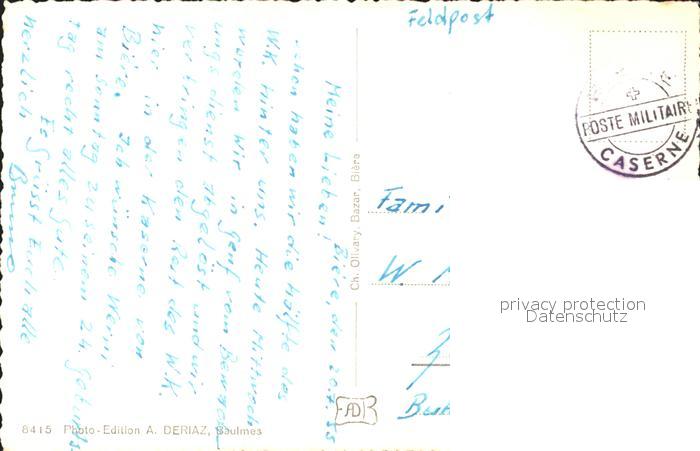 Feldpost
POSTE MILITAIRE
CASERNE
Fami
W
Ch. Olivary, Bazar, Bière
8415 Photo-Edition A. DERIAZ, Baulmes
privacy protection
Datenschutz
Bière, den 20.7.55
Meine Lieben!
haben wir die Hälfte des
W.K. hinter uns. Heute Mittwoch
werden wir in Genf vom Bewach
ungsdienst abgelöst und wir
verbringen den Rest des W.K.
hier in der Kaserne von
Bière. Ich wünsche Werni
am Sonntag zu seinem 24. Geburts-
tag recht alles Gute.
Es grüsst Euch alle
herzlich Bruno